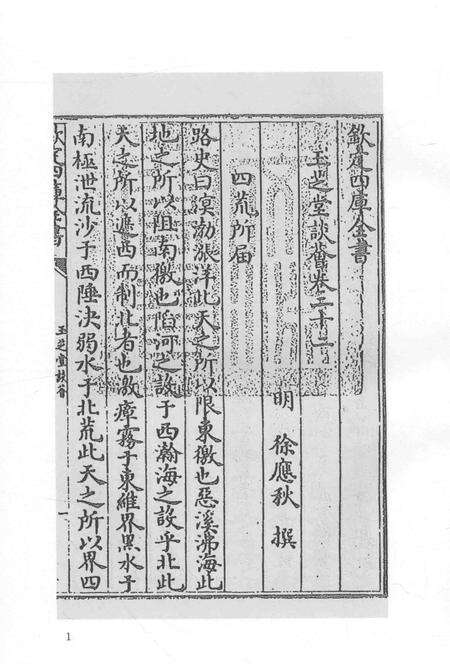 欽定四庫全書
玉芝堂談薈卷二十二
明 徐應秋 撰
四荒所届
路史曰溟渤漲洋此天之所以限東徼也惡溪沸海此
地之所以阻南徼也陷河之設于西瀚海之設乎北此
天之所以遮西而制北者也激瘴霧于東維界黑水于
南極泄流沙于西陲決弱水于北荒此天之所以界四
欽定四庫全書
玉芝堂談薈
一
1